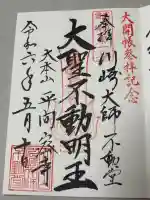 大開帳参拝記念
奉拝 川崎大師 不動堂
大聖不動明王
大本山 平間寺
令和六年五月十日